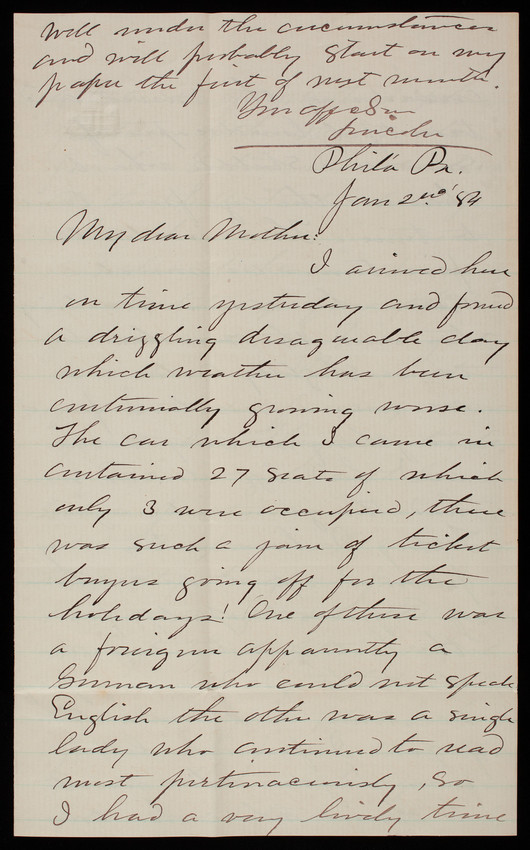 well under the circumstances
and will probably start on my
paper the first of next month.
Your aff. Son
Lincoln
Phila Pa.
Jan 2nd '84
My dear Mother:
I arrived here
on time yesterday and found
a drizzling disagreeable day
which weather has been
continually growing worse.
The car which I came in
contained 27 seats of which
only 3 were occupied, there
was such a jam of ticket
buyers going off for the
holidays! One of these was
a foreigner apparently a
German who could not speak
English the other was a single
lady who continued to read
most pertinaciously, so
I had a very lively time